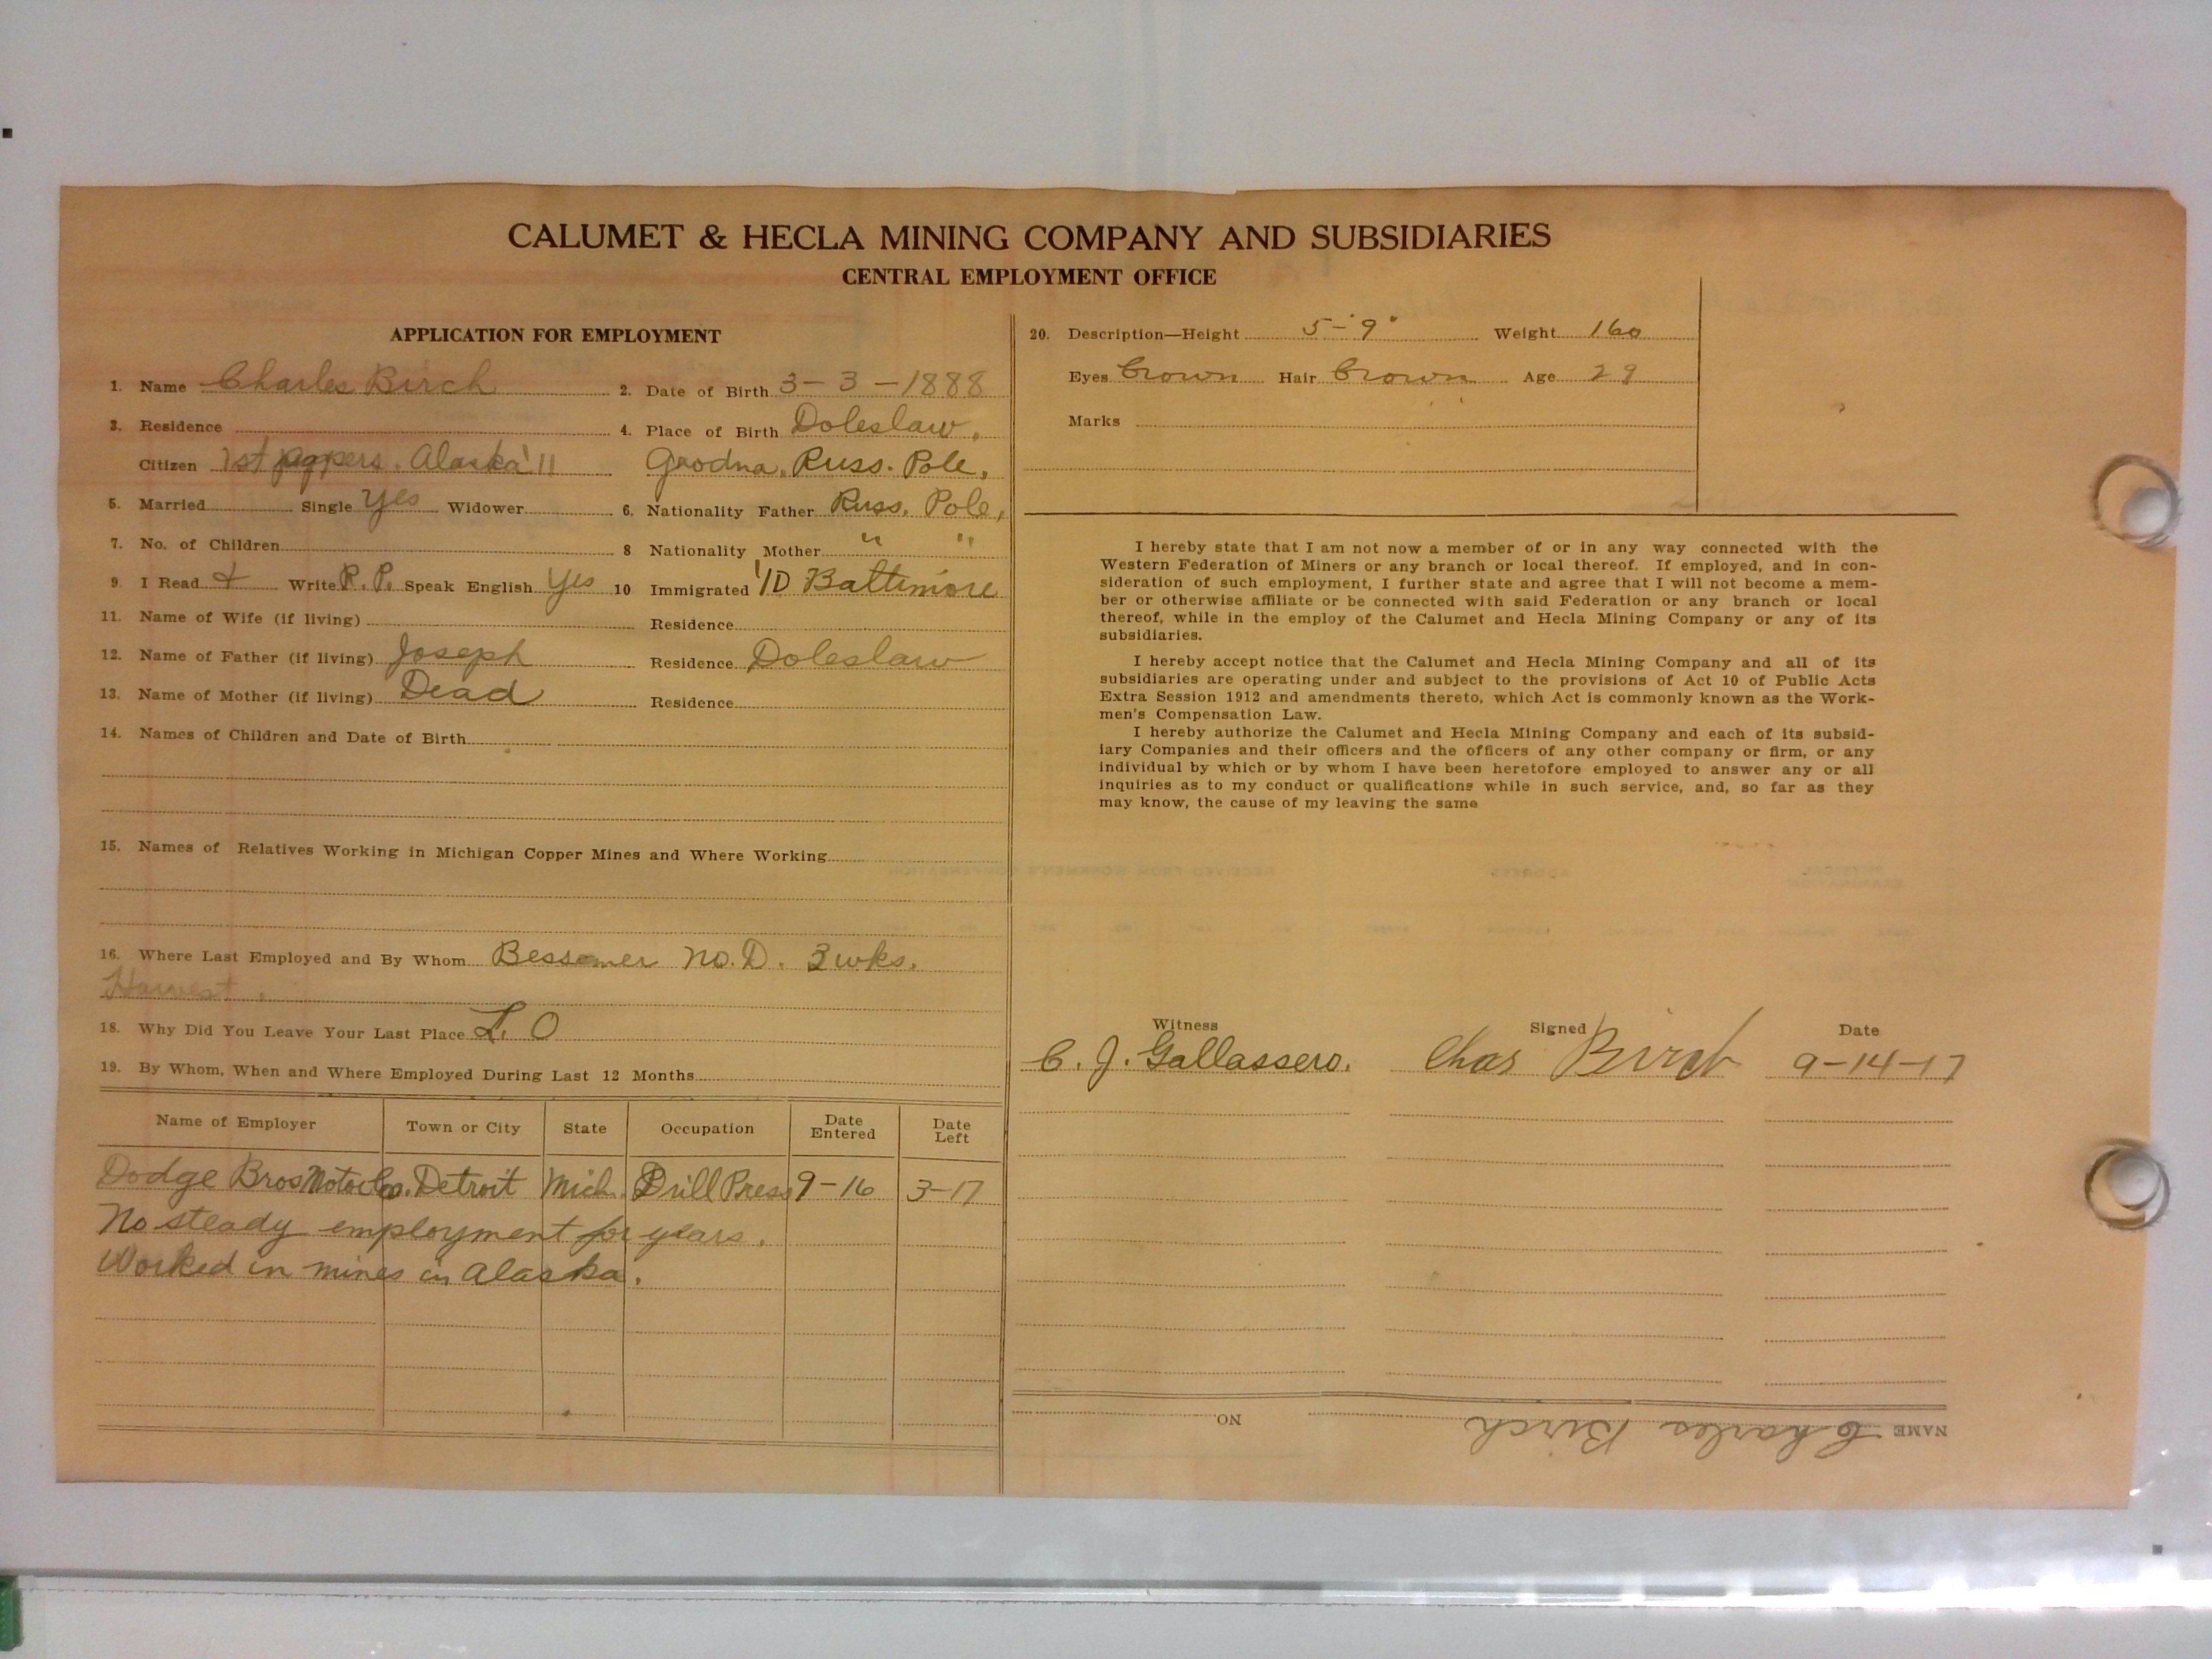 CALUMET & HECLA MINING COMPANY AND SUBSIDIARIES
CENTRAL EMPLOYMENT OFFICE
APPLICATION FOR EMPLOYMENT
1. Name Charles Birch 2. Date of Birth 3-3-1888
3. Residence 4. Place of Birth Doleslaw,
Citizen 1st papers. Alaska '11 Grodna, Russ. Pole,
5. Married Single Yes Widower 6. Nationality Father Russ. Pole,
7. No. of Children 8 Nationality Mother " "
9. I Read & Write R. P. Speak English Yes 10 Immigrated '10 Baltimore
11. Name of Wife (if living) Residence
12. Name of Father (if living) Joseph Residence Doleslaw
13. Name of Mother (if living) Dead Residence
14. Names of Children and Date of Birth
15. Names of Relatives Working in Michigan Copper Mines and Where Working
16. Where Last Employed and By Whom Bessemer No. D. 3 wks.
Harvest.
18. Why Did You Leave Your Last Place L. O
19. By Whom, When and Where Employed During Last 12 Months
Name of Employer Town or City State Occupation Date Entered Date Left
Dodge Bros Motor Co. Detroit Mich. Drill Press 9-16 3-17
No steady employment for years.
Worked in mines in Alaska.
20. Description—Height 5-'9" Weight 160
Eyes Brown Hair Brown Age 29
Marks
I hereby state that I am not now a member of or in any way connected with the
Western Federation of Miners or any branch or local thereof. If employed, and in con-
sideration of such employment, I further state and agree that I will not become a mem-
ber or otherwise affiliate or be connected with said Federation or any branch or local
thereof, while in the employ of the Calumet and Hecla Mining Company or any of its
subsidiaries.
I hereby accept notice that the Calumet and Hecla Mining Company and all of its
subsidiaries are operating under and subject to the provisions of Act 10 of Public Acts
Extra Session 1912 and amendments thereto, which Act is commonly known as the Work-
men's Compensation Law.
I hereby authorize the Calumet and Hecla Mining Company and each of its subsid-
iary Companies and their officers and the officers of any other company or firm, or any
individual by which or by whom I have been heretofore employed to answer any or all
inquiries as to my conduct or qualifications while in such service, and, so far as they
may know, the cause of my leaving the same
Witness Signed Date
C. J. Gallassero. Chas Birch 9-14-17
NAME Charles Birch NO